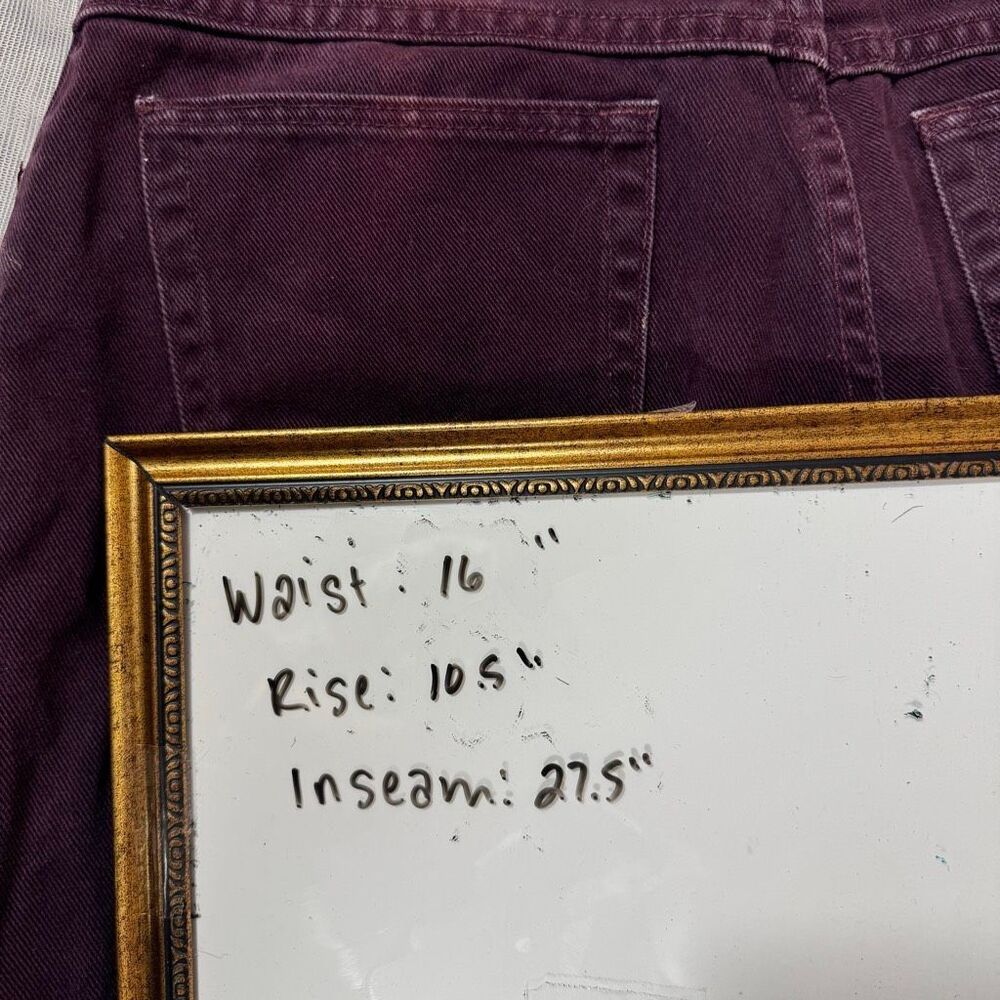 Waist: 16"
Rise: 10.5"
Inseam: 27.5"